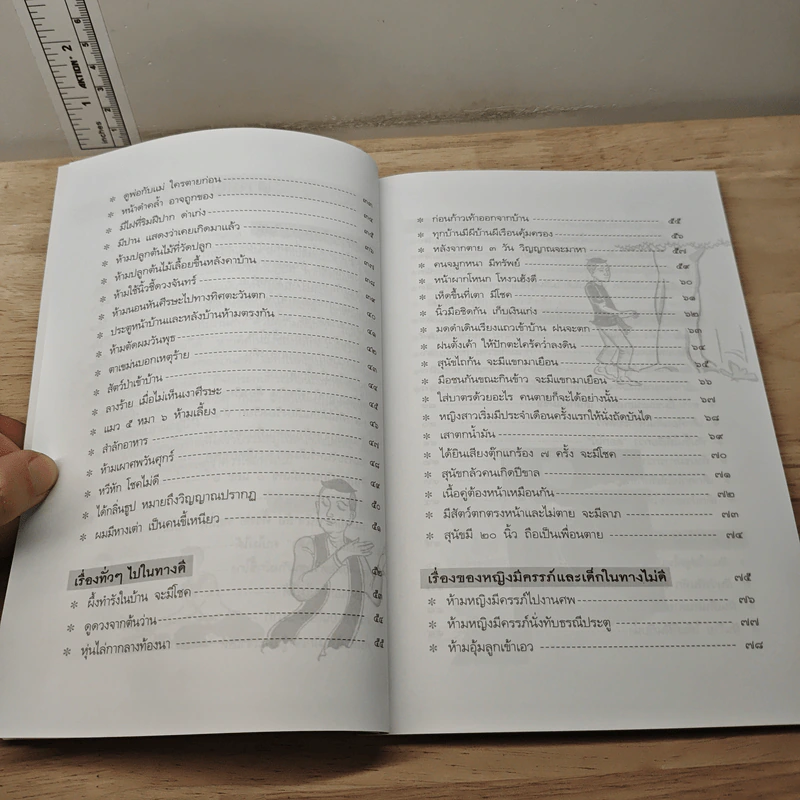 * ดูพ่อกับแม่ ใครตายก่อน ๓๓
* หน้าดำคล้ำ อาจถูกของ ๓๔
* มีไฝที่ริมฝีปาก ด่าเก่ง ๓๕
* มีปาน แสดงว่าเคยเกิดมาแล้ว ๓๖
* ห้ามปลูกต้นไม้ที่วัดปลูก ๓๗
* ห้ามปลูกต้นไม้เลื้อยขึ้นหลังคาบ้าน ๓๘
* ห้ามใช้นิ้วชี้ดวงจันทร์ ๓๙
* ห้ามนอนหันศีรษะไปทางทิศตะวันตก ๔๐
* ประตูหน้าบ้านและหลังบ้านห้ามตรงกัน ๔๑
* ห้ามตัดผมวันพุธ ๔๒
* ตาเขม่นบอกเหตุร้าย ๔๓
* สัตว์ป่าเข้าบ้าน ๔๔
* ลางร้าย เมื่อไม่เห็นเงาศีรษะ ๔๕
* แมว ๕ หมา ๖ ห้ามเลี้ยง ๔๖
* สำลักอาหาร ๔๗
* ห้ามเผาศพวันศุกร์ ๔๘
* หวีหัก โชคไม่ดี ๔๙
* ได้กลิ่นธูป หมายถึงวิญญาณปรากฏ ๕๐
* ผมมีหางเต่า เป็นคนขี้เหนียว ๕๑
เรื่องทั่วๆ ไปในทางดี ๕๒
* ผึ้งทำรังในบ้าน จะมีโชค ๕๓
* ดูดวงจากต้นว่าน ๕๔
* หุ่นไล่กากลางท้องนา ๕๕
* ก่อนก้าวเท้าออกจากบ้าน ๕๕
* ทุกบ้านมีผีบ้านผีเรือนคุ้มครอง ๕๖
* หลังจากตาย ๓ วัน วิญญาณจะมาหา ๕๗
* คนจมูกหนา มีทรัพย์ ๕๙
* หน้าผากโหนก โหงวเฮ้งดี ๖๐
* เห็ดขึ้นที่เตา มีโชค ๖๑
* นิ้วมือชิดกัน เก็บเงินเก่ง ๖๒
* มดดำเดินเรียงแถวเข้าบ้าน ฝนจะตก ๖๓
* ฝนตั้งเค้า ให้ปักตะไคร้คว่ำลงดิน ๖๔
* สุนัขไถก้น จะมีแขกมาเยือน ๖๕
* มือชนกันขณะกินข้าว จะมีแขกมาเยือน ๖๖
* ใส่บาตรด้วยอะไร คนตายก็จะได้อย่างนั้น ๖๗
* หญิงสาวเริ่มมีประจำเดือนครั้งแรกให้นั่งถัดบันได ๖๘
* เสาตกน้ำมัน ๖๙
* ได้ยินเสียงตุ๊กแกร้อง ๗ ครั้ง จะมีโชค ๗๐
* สุนัขกลัวคนเกิดปีขาล ๗๑
* เนื้อคู่ต้องหน้าเหมือนกัน ๗๒
* มีสัตว์ตกตรงหน้าและไม่ตาย จะมีลาภ ๗๓
* สุนัขมี ๒๐ นิ้ว ถือเป็นเพื่อนตาย ๗๔
เรื่องของหญิงมีครรภ์และเด็กในทางไม่ดี ๗๕
* ห้ามหญิงมีครรภ์ไปงานศพ ๗๖
* ห้ามหญิงมีครรภ์นั่งทับธรณีประตู ๗๗
* ห้ามอุ้มลูกเข้าเอว ๗๘
inches 1 2
AKTION
1 2 3 4 5 6